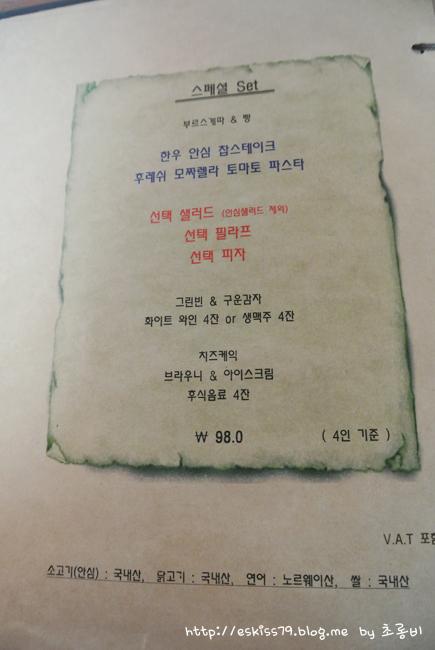 스페셜 Set
부르스게따 & 빵
한우 안심 찹스테이크
후레쉬 모짜렐라 토마토 파스타
선택 샐러드 (안심샐러드 제외)
선택 필라프
선택 피자
그린빈 & 구운감자
화이트 와인 4잔 or 생맥주 4잔
치즈케익
브라우니 & 아이스크림
후식음료 4잔
₩ 98.0 ( 4인 기준 )
V.A.T 포함
소고기(안심) : 국내산, 닭고기 : 국내산, 연어 : 노르웨이산, 쌀 : 국내산
http://eskiss79.blog.me by 초롱비